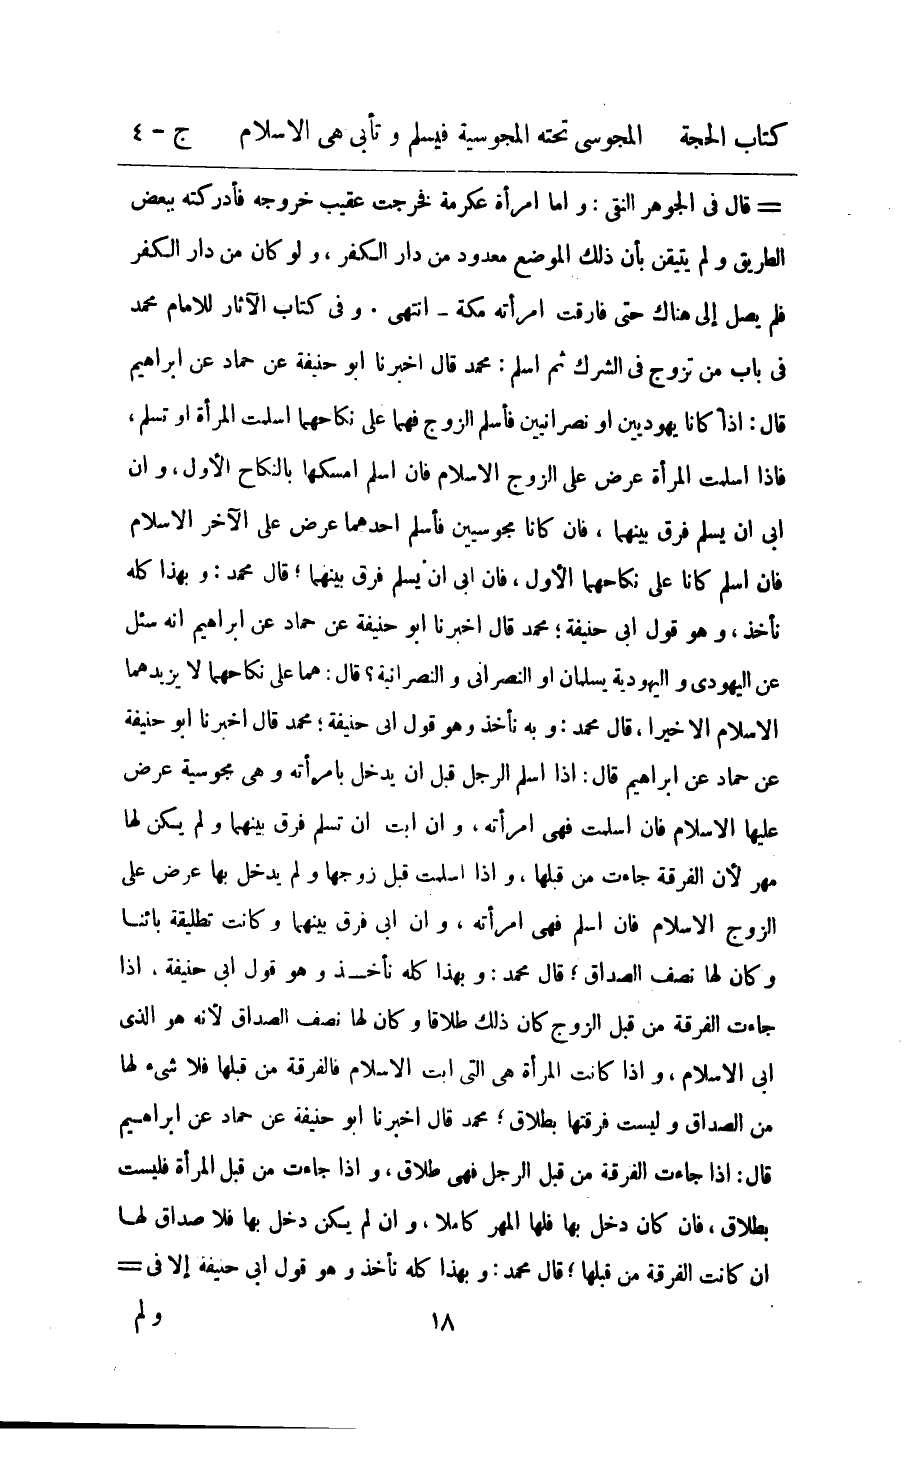 كتاب الحجة المجوسى تحته المجوسية فيسلم و تأبى هى الاسلام ج - ٤
= قال فى الجوهر النقى : و اما امرأة عكرمة فخرجت عقيب خروجه فأدركته ببعض
الطريق و لم يتيقن بأن ذلك الموضع معدود من دار الكفر ، و لو كان من دار الكفر
فلم يصل إلى هناك حتى فارقت امرأته مكة - انتهى . و فى كتاب الآثار للامام محمد
فى باب من تزوج فى الشرك ثم اسلم : محمد قال اخبرنا ابو حنيفة عن حماد عن ابراهيم
قال : اذا كانا يهوديين او نصرانيين فأسلم الزوج فهما على نكاحهما اسلمت المرأة او تسلم ،
فاذا اسلمت المرأة عرض على الزوج الاسلام فان اسلم امسكها بالنكاح الأول ، و ان
ابى ان يسلم فرق بينهما ، فان كانا مجوسيين فأسلم احدهما عرض على الآخر الاسلام
فان اسلم كانا على نكاحهما الأول ، فان ابى ان يسلم فرق بينهما ؛ قال محمد : و بهذا كله
نأخذ ، و هو قول ابى حنيفة ؛ محمد قال اخبرنا ابو حنيفة عن حماد عن ابراهيم انه سئل
عن اليهودى و اليهودية يسلمان او النصرانى و النصرانية ؟ قال : هما على نكاحهما لا يزيدهما
الاسلام الا خيرا ، قال محمد : و به نأخذ وهو قول ابى حنيفة ؛ محمد قال اخبرنا ابو حنيفة
عن حماد عن ابراهيم قال : اذا اسلم الرجل قبل ان يدخل بامرأته و هى مجوسية عرض
عليها الاسلام فان اسلمت فهى امرأته ، و ان ابت ان تسلم فرق بينهما و لم يكن لها
مهر لأن الفرقة جاءت من قبلها ، و اذا اسلمت قبل زوجها و لم يدخل بها عرض على
الزوج الاسلام فان اسلم فهى امرأته ، و ان ابى فرق بينهما و كانت تطليقة بائنا
و كان لها نصف الصداق ؛ قال محمد : و بهذا كله نأخذ و هو قول ابى حنيفة ، اذا
جاءت الفرقة من قبل الزوج كان ذلك طلاقا و كان لها نصف الصداق لأنه هو الذى
ابى الاسلام ، و اذا كانت المرأة هى التى ابت الاسلام فالفرقة من قبلها فلا شىء لها
من الصداق و ليست فرقتها بطلاق ؛ محمد قال اخبرنا ابو حنيفة عن حماد عن ابراهيم
قال : اذا جاءت الفرقة من قبل الرجل فهى طلاق ، و اذا جاءت من قبل المرأة فليست
بطلاق ، فان كان دخل بها فلها المهر كاملا ، و ان لم يكن دخل بها فلا صداق لها
ان كانت الفرقة من قبلها ؛ قال محمد : و بهذا كله نأخذ و هو قول ابى حنيفة إلا فى =
١٨ و لم